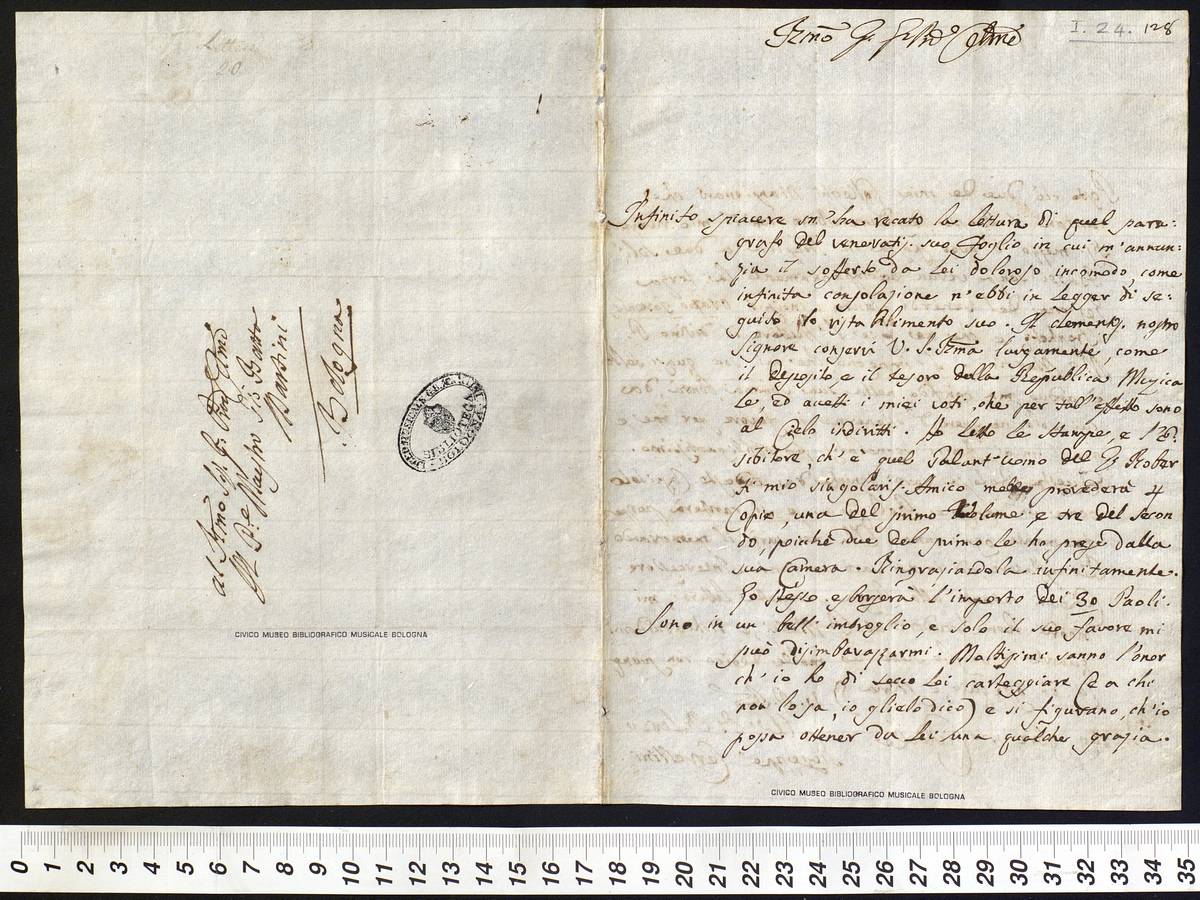 I. 24. 128
Infinito spiacere m'ha recato la lettura di quel para:
grafo del veneratis. suo foglio in cui m'annun:
zia il sofferto da Lei doloroso incomodo come
infinita consolazione n'ebbi in legger di se:
guito lo ristabilimento suo. Il clementis. nostro
Signore conservi V. S. Ill.ma lungamente, come
il deposito, e il tesoro della Republica Musica
le, ed accetti i miei voti, che per tall'effetto sono
al Cielo indiritti. Ho letto le Stampe, e l'
sibitore, ch'è quel Galant'uomo del P. Rober
ti mio singolaris. Amico provederà 4
Copie, una del primo Volume, e tre del Secon
do, poiché due del primo le ho prese dalla
sua Camera. Ringraziandola infinitamente.
Lo stesso esborserà l'importo dei 30 Paoli.
Sono in un bell'imbroglio, e solo il suo favore mi
può disimbarazzarmi. Moltissimi sanno l'onor
ch'io ho di secco Lei carteggiare (e a chi
non lo sa, io glielo dico) e si figurano, ch'io
possa ottener da Lei una qualche grazia.
CIVICO MUSEO BIBLIOGRAFICO MUSICALE BOLOGNA
Al
Il P.re Maestro Gio Batta
Martini
Bologna
BIBLIOTECA
BOLOGNA
CIVICO MUSEO BIBLIOGRAFICO MUSICALE BOLOGNA
0 1 2 3 4 5 6 7 8 9 10 11 12 13 14 15 16 17 18 19 20 21 22 23 24 25 26 27 28 29 30 31 32 33 34 35